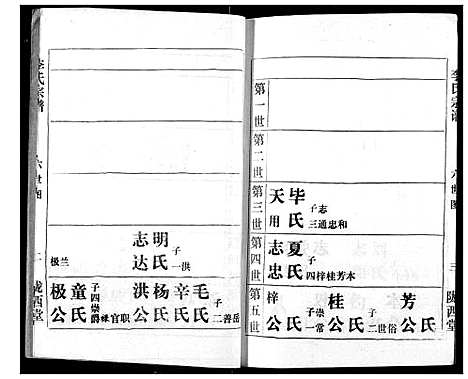 李氏宗谱
六世图
三
陇西堂
第一世
第二世
第三世
天用
毕氏
子志
三通忠和
第四世
志忠
夏氏
子
四梓桂芳本
第五世
梓公
氏
子崇
一常
桂公
氏
子世
二俗
芳公
氏
李氏宗谱
六世图
二
陇西堂
志达
明氏
子
一洪
极兰
极公
童氏
子崇
四爵禄官职
洪公
杨氏
辛氏
毛氏
子
二善岳